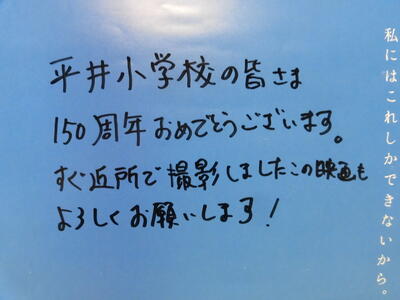 平井小学校の皆さま
150周年おめでとうございます。
すぐ近所で撮影しましたこの映画も
よろしくお願いします!
私にはこれしかできないから。